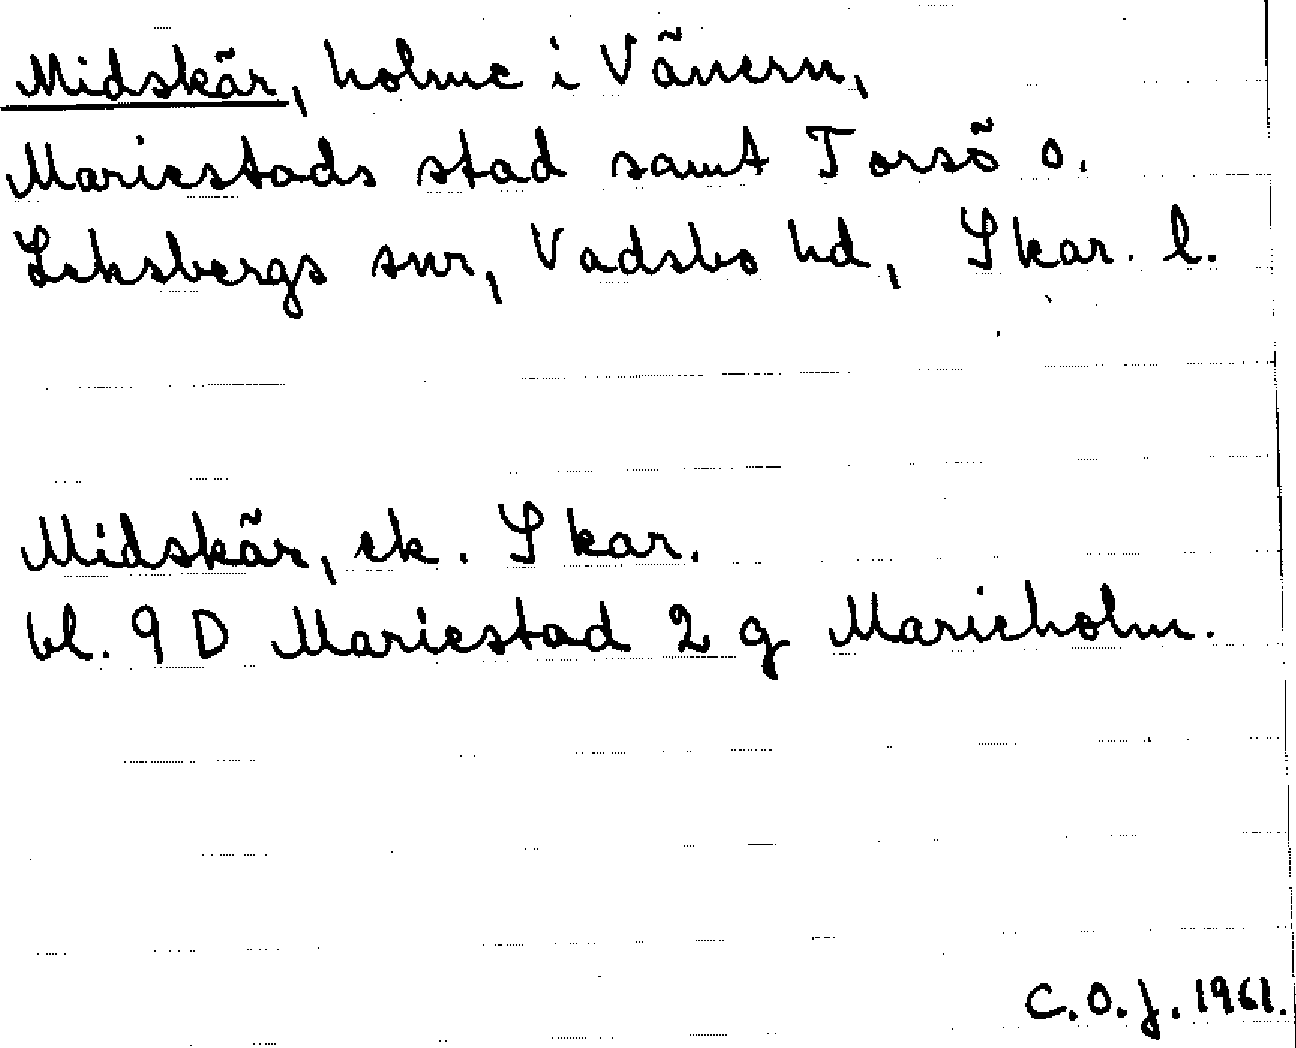 Midskär, holme i Vänern,
Mariestads stad samt Torsö o.
Leksbergs snr, Vadsbo hd, Skar. l.
Midskär, ek. Skar.
bl. 9 D Mariestad 2 g Marieholm.
C.O.J. 1961.